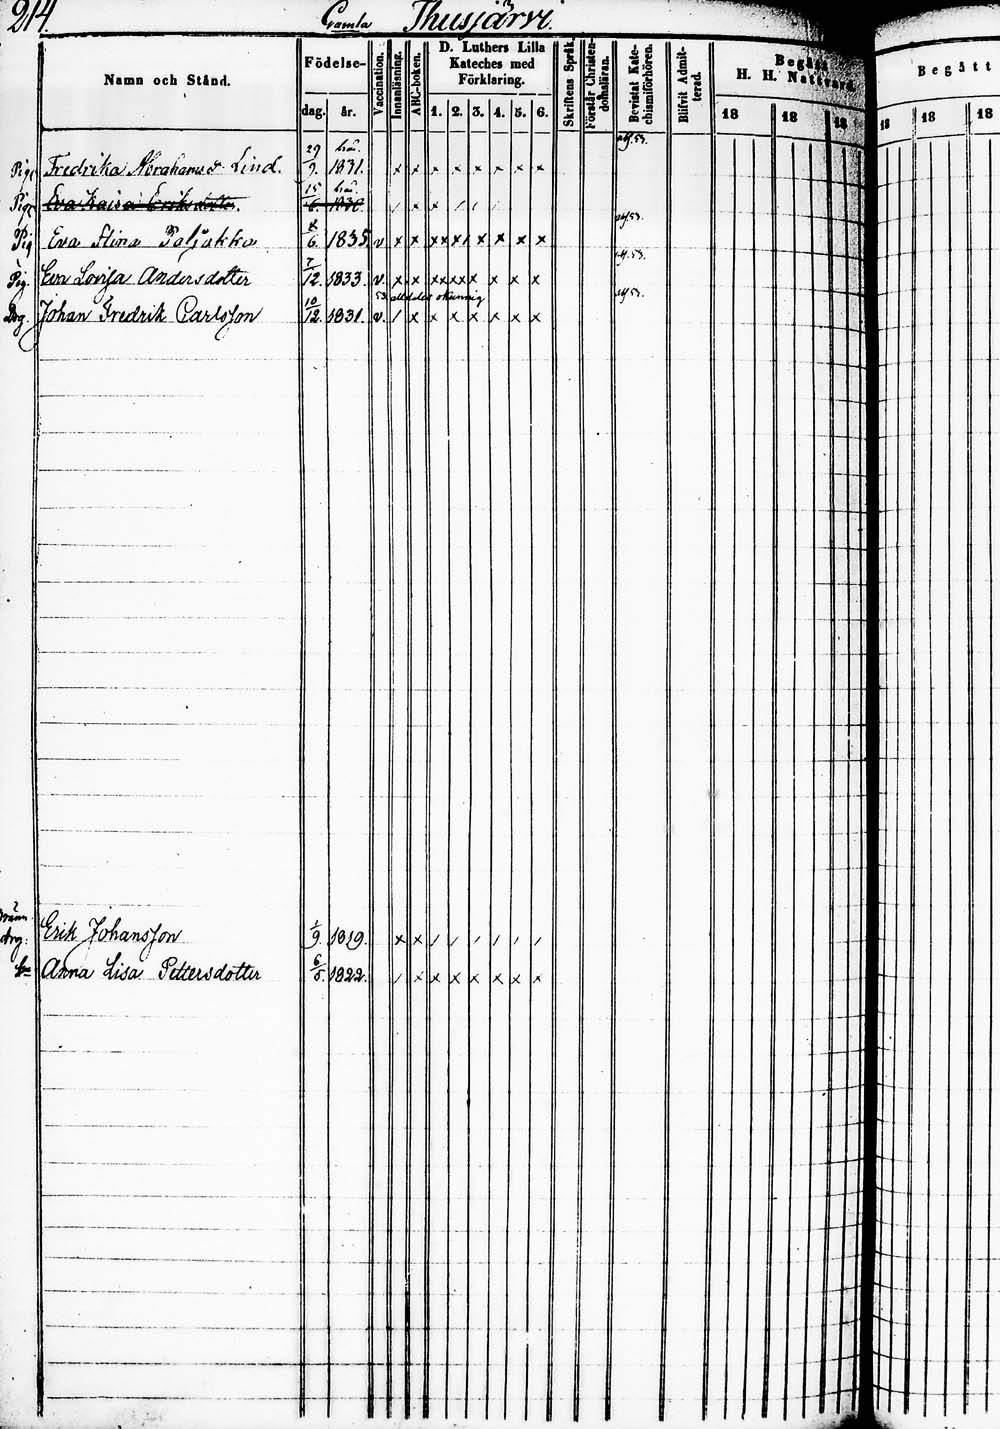 214. Gamla Thusjärvi.
Namn och Stånd. Födelse- Vaccination. Innanläsning. ABC-boken. D. Luthers Lilla Kateches med Förklaring. Skriftens Språk. Förstår Christendomsläran. Bevistat Katechismiförhören. Blifvit Admitterad. Begått H. H. Nattvard. Begått
dag. år. 1. 2. 3. 4. 5. 6. 18 18 18 18 18 18
Pig. Fredrika Abrahamsd. Lind. 29/9. 1831. x x x x x x x x
Pig. Eva Kaisa Eriksdotter. 15/6. 1830 / x x / / /
53.
Pig Eva Stina Paljakka 8/6. 1835. v. x x xx x/ x x x x
53.
Pig. Eva Lovisa Andersdotter 7/12. 1833. v. x x xx xx x x x x
53 alldeles okunnig 53.
Drg. Johan Fredrik Carlsson 10/12. 1831. v. / x x x x x x x
drg. Erik Johansson 1/9. 1819. x x / / / / / /
Anna Lisa Pettersdotter 6/5. 1822. / x x x x x x x